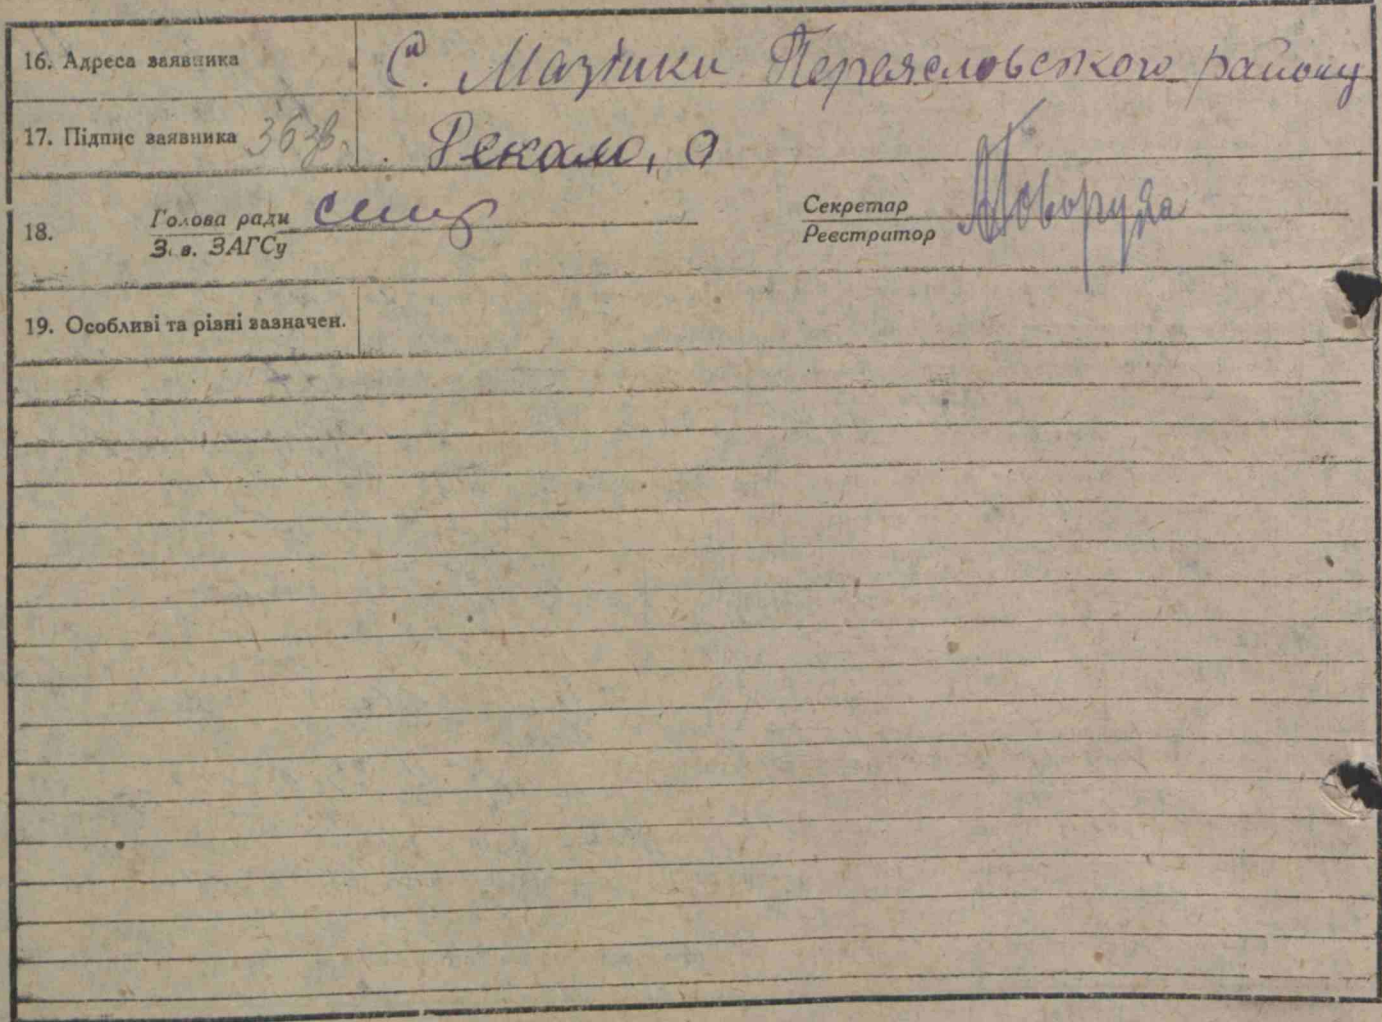 16. Адреса заявника С. Мазінки Переясловського району
17. Підпис заявника Рекало, О
18. Голова ради Секретар
З. в. ЗАГСу Реєстратор
19. Особливі та різні зазначен.